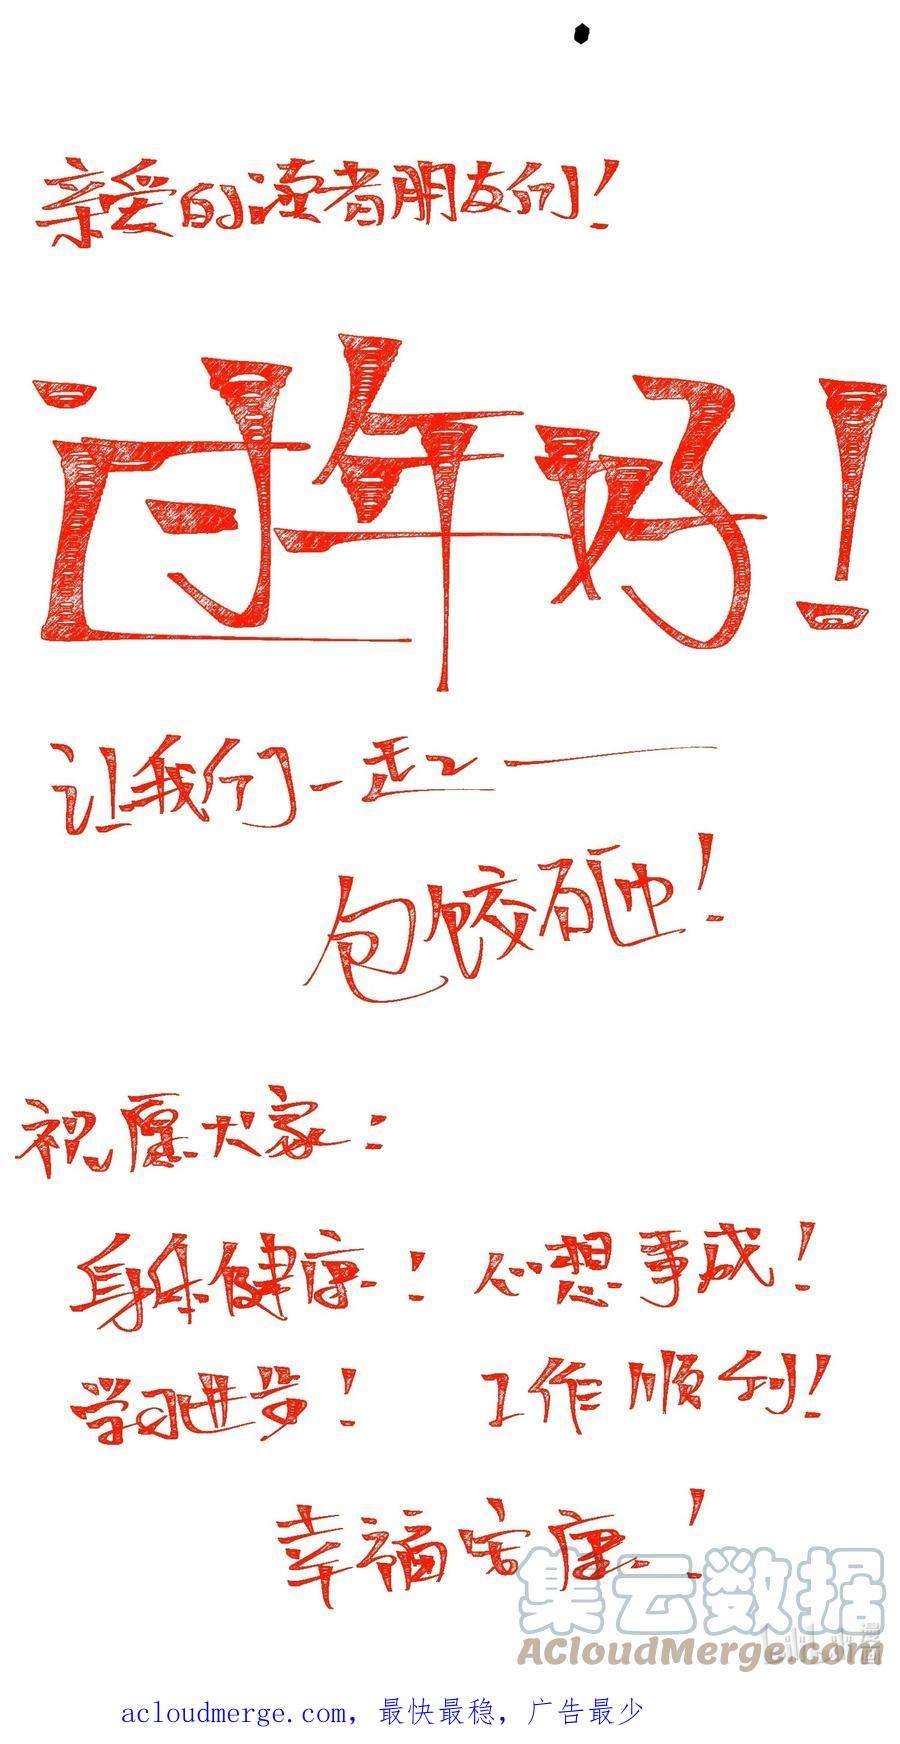 亲爱的读者朋友们！
过年好！
让我们一起——
包饺砸！
祝愿大家：
身体健康！ 心想事成！
学习进步！ 工作顺利！
幸福安康！
集云数据
ACloudMerge.com
acloudmerge.com，最快最稳，广告最少